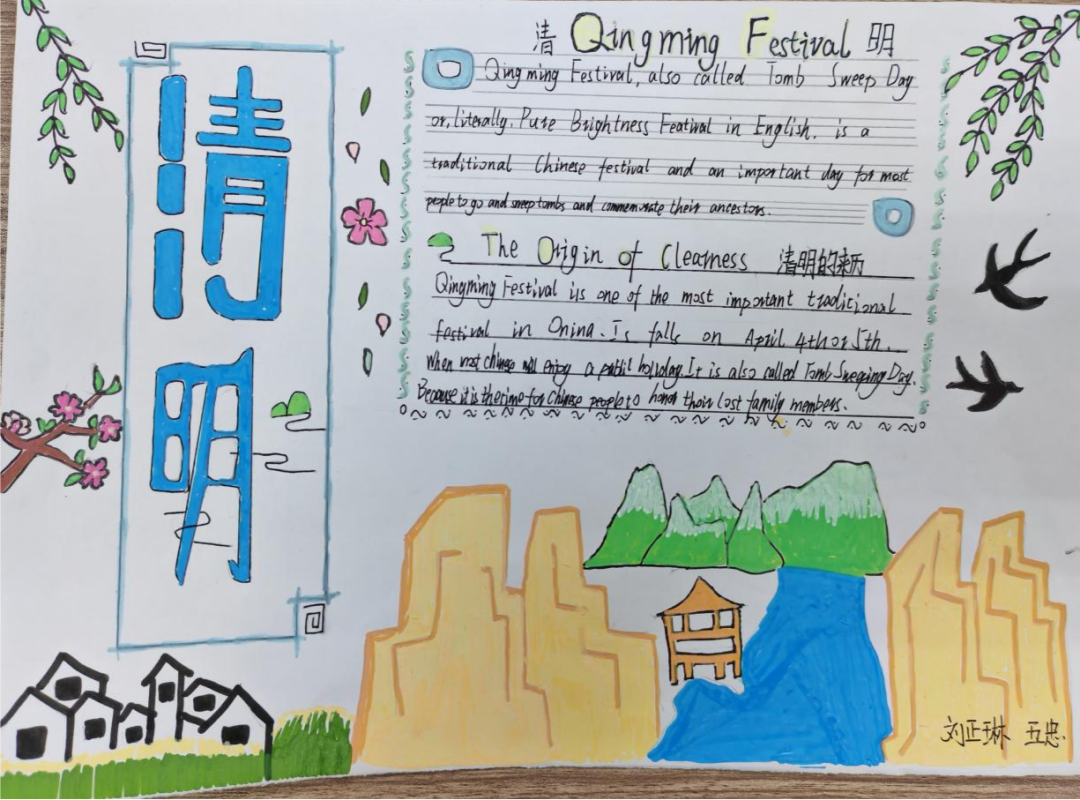 清明
清 Qingming Festival 明
Qingming Festival, also called Tomb Sweep Day
or, literally. Pure Brightness Featival in English. is a
traditional Chinese festival and an important day for most
people to go and sweep tombs and commemorate their ancestors.
The Origin of Clearness 清明的来历
Qingming Festival is one of the most important traditional
festival in Onina. Is falls on April 4th or 5th.
When most chinese will enjoy a public holiday. It is also called Tomb Sweeping Day.
Because it is the time for Chinese people to honor their lost family members.
刘正琳 五忠